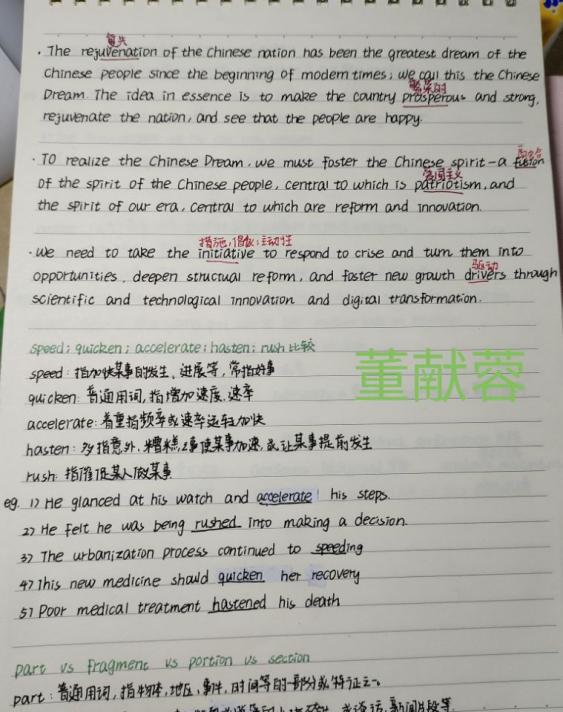 复兴
· The rejuvenation of the Chinese nation has been the greatest dream of the
Chinese people since the beginning of modern times; we call this the Chinese
繁荣的
Dream. The idea in essence is to make the country prosperous and strong,
rejuvenate the nation, and see that the people are happy.
融合
· TO realize the Chinese Dream, we must foster the Chinese spirit-a fusion
爱国主义
of the spirit of the Chinese people, central to which is patriotism, and
the spirit of our era, central to which are reform and innovation.
措施,倡议;主动性
· We need to take the initiative to respond to crise and turn them into
驱动
opportunities, deepen structual reform, and foster new growth drivers through
scientific and technological innovation and digital transformation.
speed; quicken; accelerate; hasten; rush 比较
speed: 指加快某事的发生、进展等, 常指好事
董献蓉
quicken: 普通用词, 指增加速度、速率
accelerate: 着重指频率或速率逐渐加快
hasten: 多指意外、糟糕之事使某事加速, 或让某事提前发生
rush: 指催促某人做某事
eg. 1) He glanced at his watch and accelerate his steps.
2) He felt he was being rushed into making a decision.
3) The urbanization process continued to speeding
4) This new medicine should quicken her recovery
5) Poor medical treatment hastened his death
part vs fragment vs portion vs section
part: 普通用词, 指物体、地区、事件、时间等的一部分或特征之一